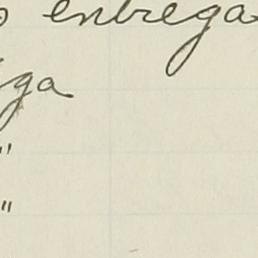 entrega
ga
"
"